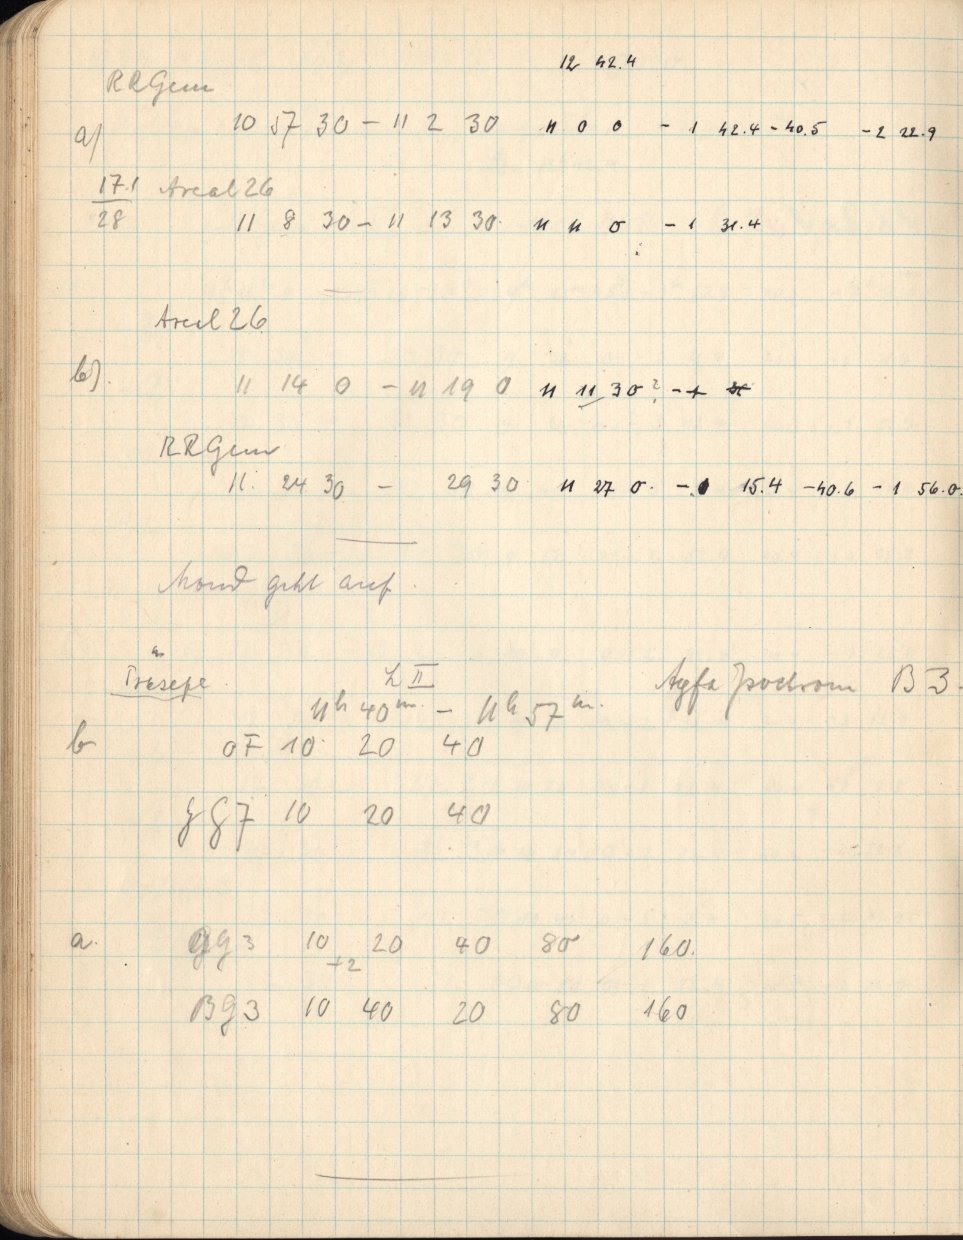 12 42.4
RR Gem
a) 10 57 30 – 11 2 30 11 0 0 – 1 42.4 – 40.5 – 2 22.9
17.1 Areal 26
28 11 8 30 – 11 13 30 11 11 0 – 1 31.4
Areal 26
b) 11 14 0 – 11 19 0 11 11 30 ? – 1
RR Gem
11 24 30 – 29 30 11 27 0 – 15.4 – 40.6 – 1 56.0
Mond geht auf.
Präsepe L II Agfa Isochrom B 3.
11h 40m – 11h 57m
b oF 10 20 40
gG7 10 20 40
a. GG3 10 20 40 80 160.
+2
BG3 10 40 20 80 160